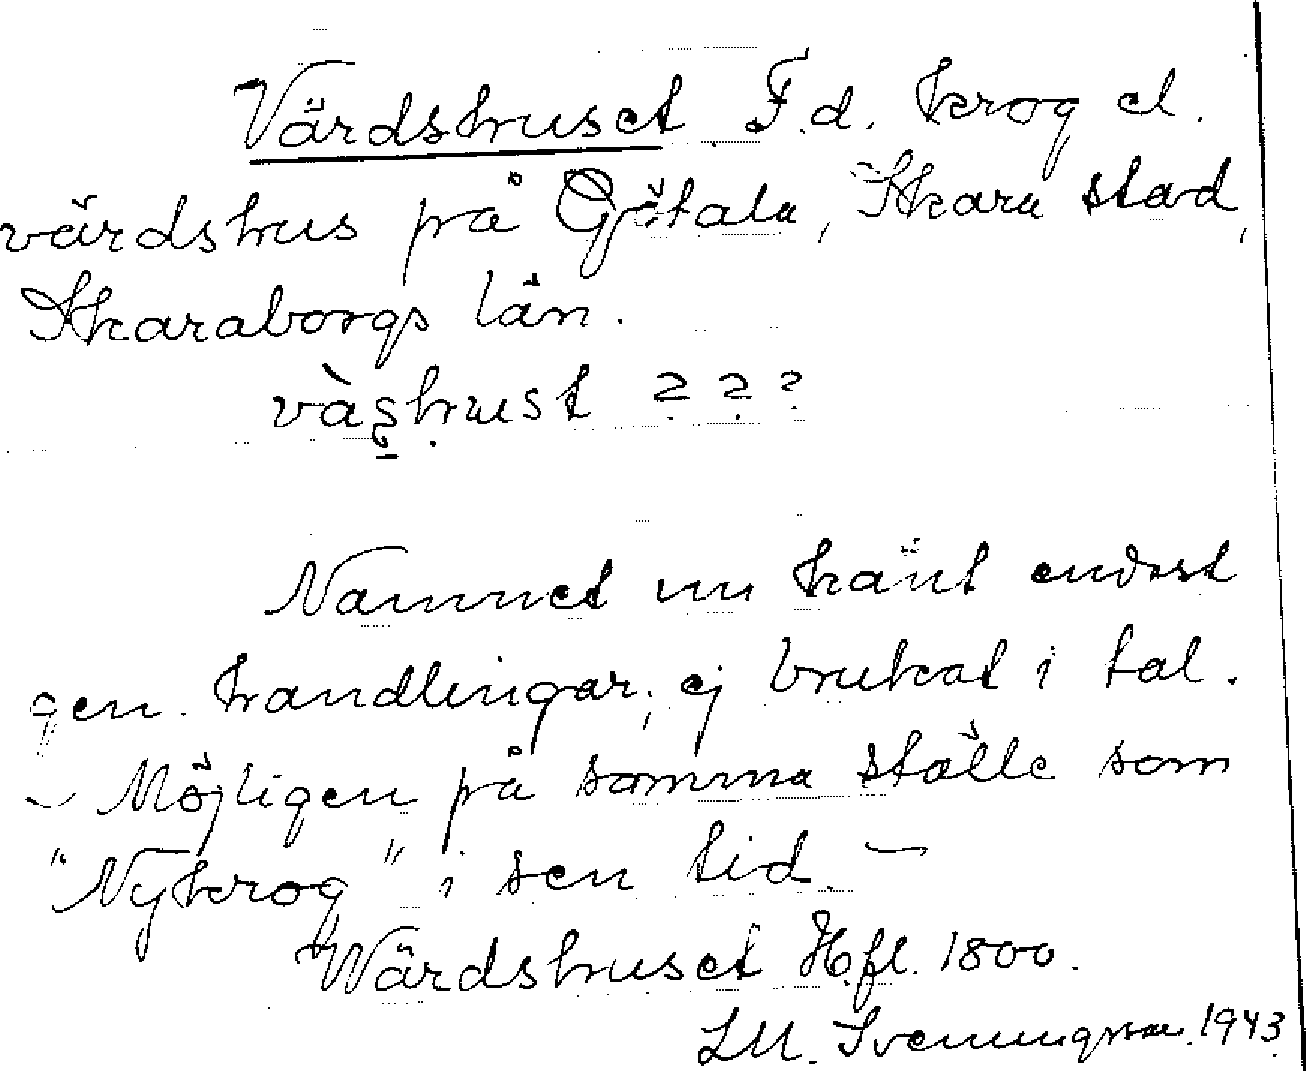 Värdshuset F.d. krog el.
värdshus på Götala, Skara stad,
Skaraborgs län.
vàs̱hust ? ? ?
Namnet nu känt endast
gen. handlingar, ej brukat i tal.
– Möjligen på samma ställe som
"Nykrog" i sen tid. –
Wärdshuset Hfl. 1800.
LM. Svenungsson 1943